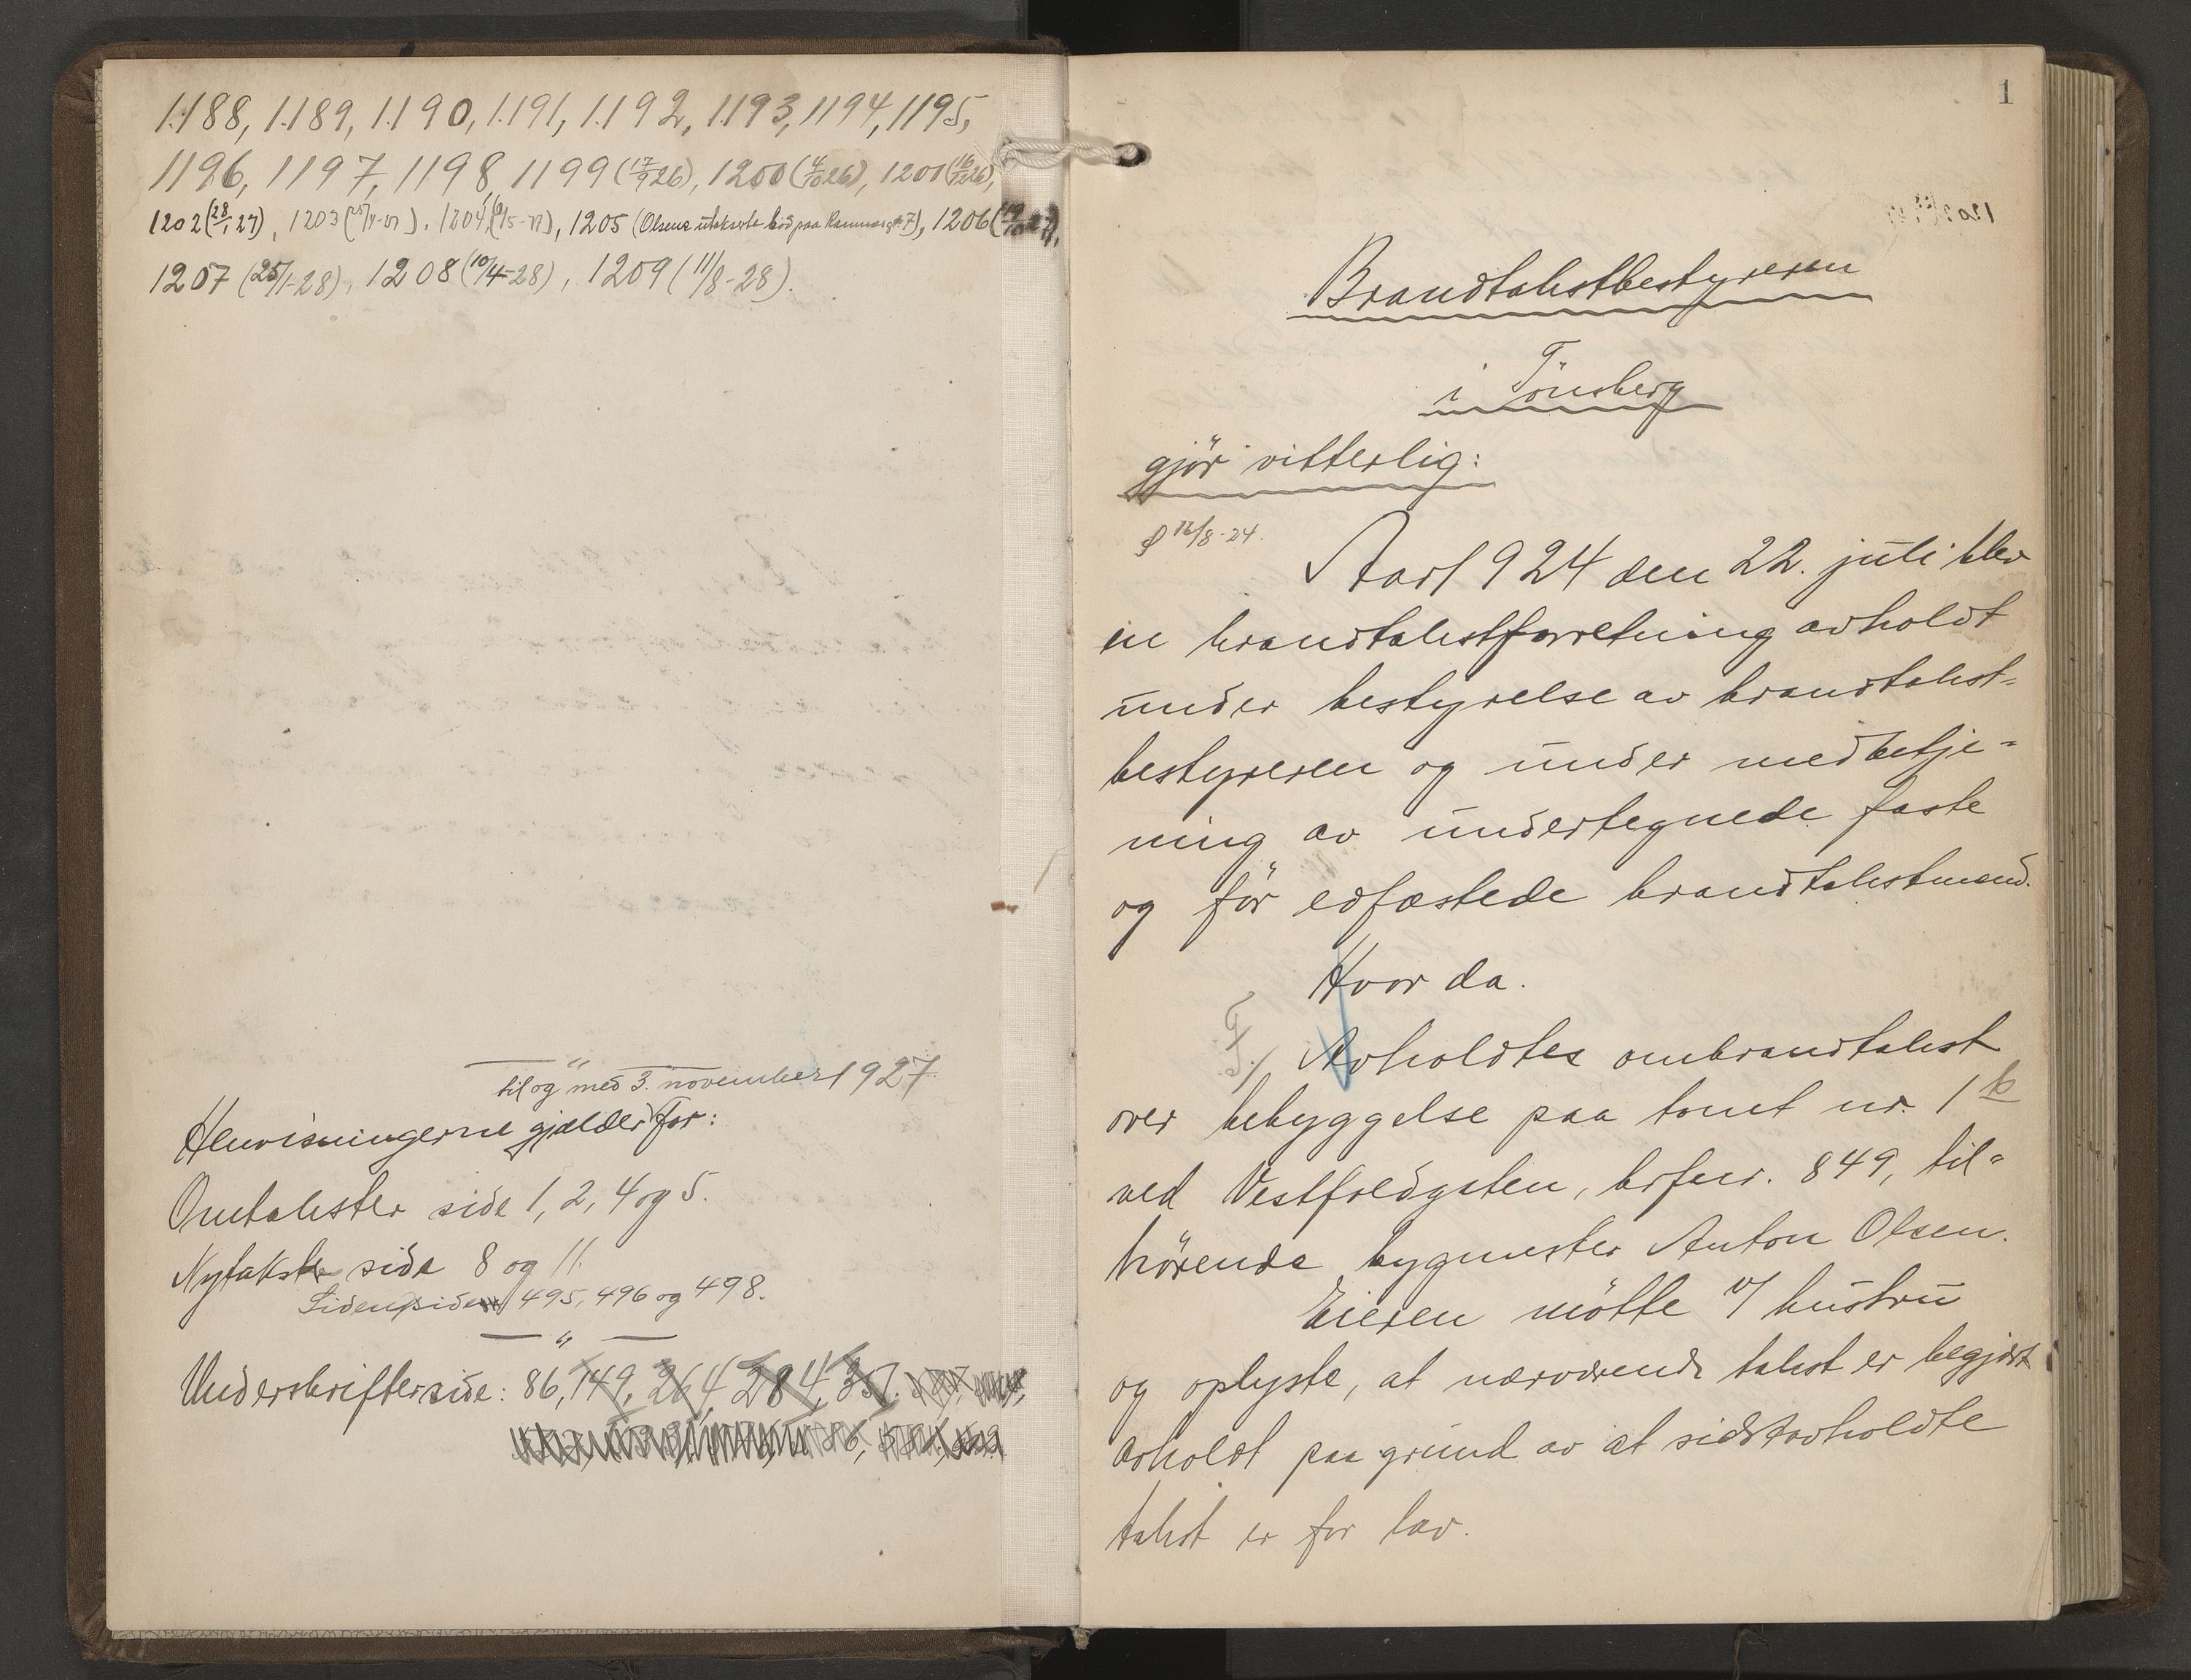 1188, 1189, 1190, 1191, 1192, 1193, 1194, 1195,
1196, 1197, 1198, 1199 (17/9 26), 1200 (4/10 26), 1201 (16/12 26),
1202 (28/1 27), 1203 (25/4-27), 1204 (9/5-27), 1205 (Olsens utakserte bod paa 7), 1206 (
1207 (25/1-28), 1208 (10/4-28), 1209 (11/8-28).
— " —
til og med 3. november 1927.
Henvisningerne gjælder for:
Omtakster side 1, 2, 4 og 5.
Nytakster side 8 og 11.
Siden side 495, 496 og 498.
— " —
Underskrifter side: 86, 149, 264, 284, 357.
1
Brandtakstbestyreren
i Tönsberg
gjör vitterlig:
16/8-24.
Aar 1924 den 22. juli blev
en brandtakstforretning avholdt
under bestyrelse av brandtakst-
bestyreren og under medbetje-
ning av undertegnede faste
og för edfæstede brandtakstmænd.
Hvor da.
Avholdtes ombrandtakst
over bebyggelse paa tomt nr. 1 b
ved Vestfoldgaten, brfnr. 849, til-
hörende bygmester Anton Olsen.
Eieren mötte v/ hustru
og oplyste, at nærværende takst er begjært
avholdt paa grund av at sidstavholdte
takst er for lav.